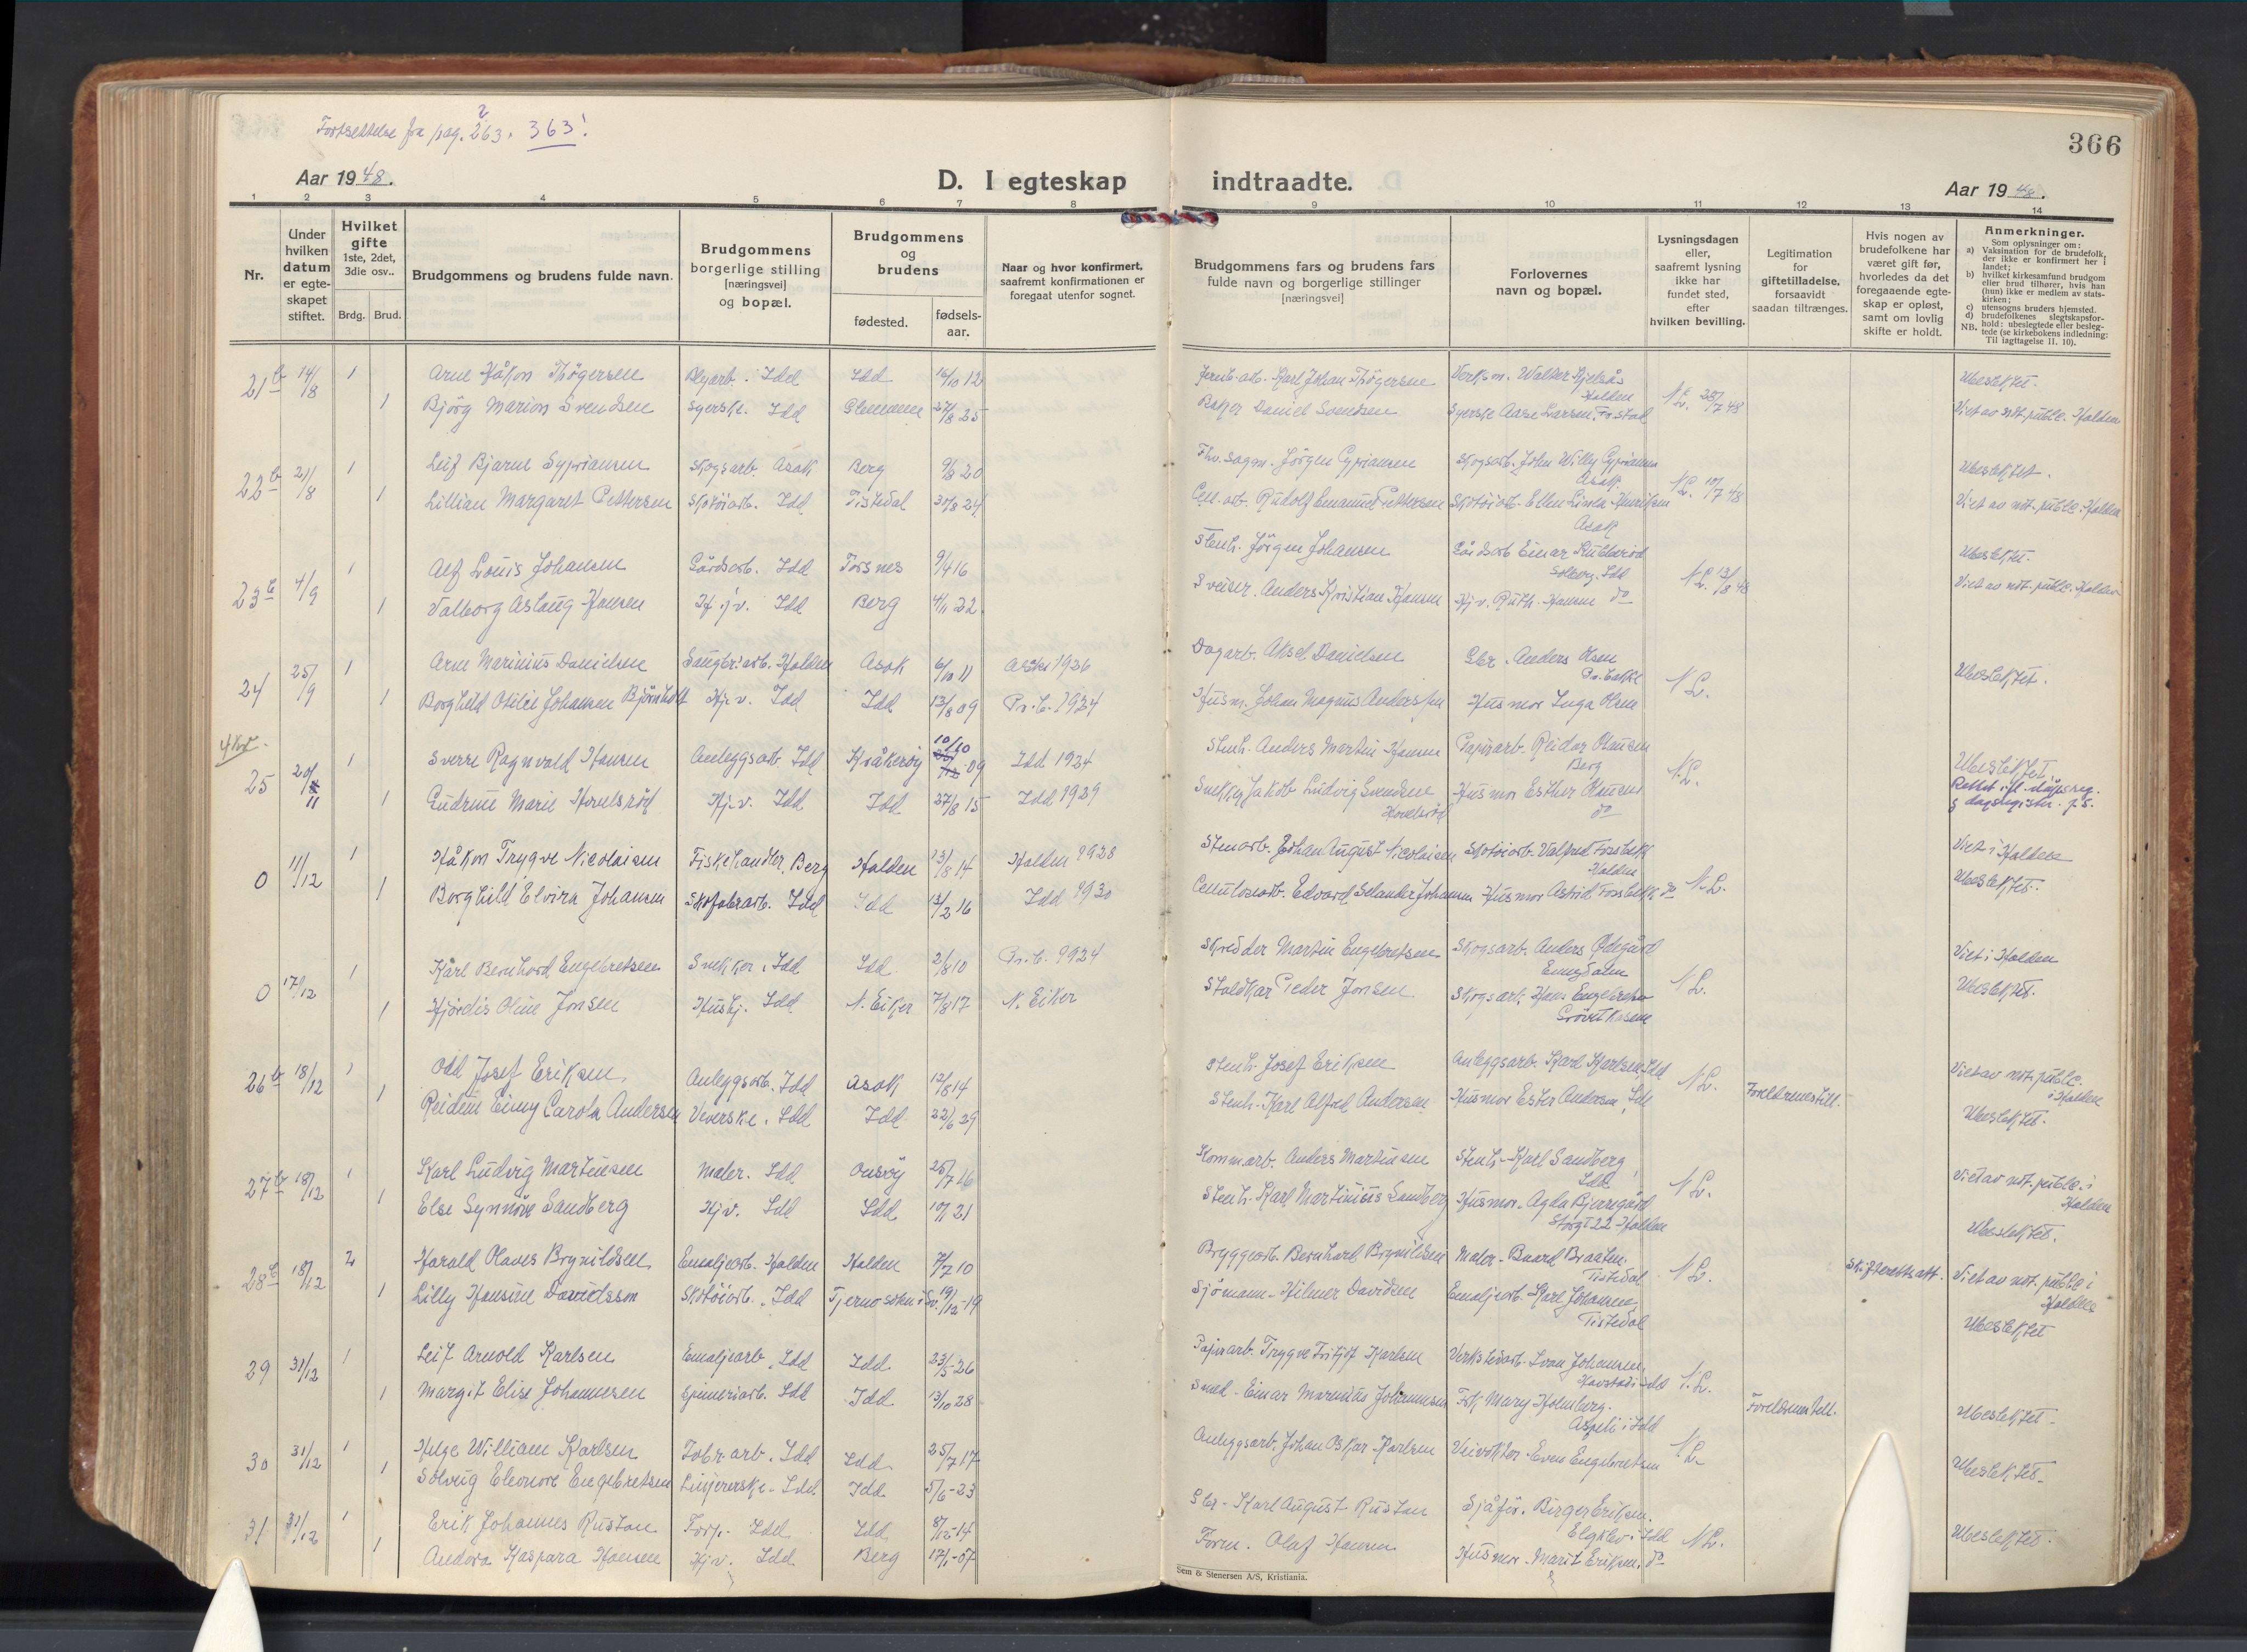 Fortsettelse fra pag. 263. 363!
366
Aar 1948.
D. I egteskap
indtraadte.
Aar 1948.
1 2 3 4 5 6 7 8 9 10 11 12 13 14
Nr.
Under hvilken datum er egteskapet stiftet.
Hvilket gifte 1ste, 2det, 3die osv..
Brdg. Brud.
Brudgommens og brudens fulde navn.
Brudgommens borgerlige stilling [næringsvei] og bopæl.
Brudgommens og brudens
fødested. fødselsaar.
Naar og hvor konfirmert, saafremt konfirmationen er foregaat utenfor sognet.
Brudgommens fars og brudens fars fulde navn og borgerlige stillinger [næringsvei]
Forlovernes navn og bopæl.
Lysningsdagen eller, saafremt lysning ikke har fundet sted, efter hvilken bevilling.
Legitimation for giftetilladelse, forsaavidt saadan tiltrænges.
Hvis nogen av brudefolkene har været gift før, hvorledes da det foregaaende egteskap er opløst, samt om lovlig skifte er holdt.
Anmerkninger.
Som oplysninger om:
a) Vaksination for de brudefolk, der ikke er konfirmert her i landet;
b) hvilket kirkesamfund brudgom eller brud tilhører, hvis han (hun) ikke er medlem av statskirken;
c) utensogns bruders hjemsted.
d) brudefolkenes slegtskapsforhold: ubeslegtede eller beslegtede (se kirkebokens indledning:
NB. Til iagttagelse II. 10).
21b 14/8 1 Arne Håkon Thøgersen Blyarb. Idd Idd 16/10 12 Jernb.arb. Karl Johan Thøgersen Verksm. Walter Kjelsås Halden N.L. 28/7 48 Ubeslektet.
1 Bjørg Marion Svendsen Syerske. Idd Glemmen 27/8 25 Baker Daniel Svendsen Syerske Aase Larsen Viet av not. publ. Halden
22b 21/8 1 Leif Bjarne Sypriansen Skogsarb. Asak Berg 9/8 20 Fhv. sagm. Jörgen Cypriansen Skogsarb. John Willy Cypriansen Asak N.L. 17/7 48 Ubeslektet.
1 Lillian Margaret Pettersen Skotöiarb. Idd Tistedal 31/8 24 Cell.arb. Rudolf Emanuel Pettersen Skotöiarb. Ellen Linea Henriksen Asak Viet av not. publ. Halden
23b 4/9 1 Alf Louis Johansen Gårdsarb. Idd Torsnes 9/4 16 Stenh. Jörgen Johansen Gårdsarb Einar Solberg. Idd N.L. 13/8 48 Ubeslektet.
1 Valborg Aslaug Hansen Hj.v. Idd Berg 4/11 22 Sveiser. Anders Kristian Hansen Hj.v. Ruth Hansen do Viet av not. publ. Halden
24 25/9 1 Arne Marinius Danielsen Saugbr.arb. Halden Asak 6/10 11 Asak 1926 Dagarb. Aksel Danielsen Gbr. Anders Olsen Pr.bakke N.L. Ubeslektet.
1 Borghild Otilie Johansen Björnholt Hj.v. Idd Idd 13/8 09 Pr.b. 1924 Husm. Johan Magnus Anderssen Husmor Inga Olsen
25 20/11 1 Sverre Ragnvald Hansen Anleggsarb Idd Kråkeröy 10/10 09 Idd 1924 Stenh. Anders Martin Hansen Papirarb. Reidar Olausen Berg N.L. Ubeslektet.
1 Gudrun Marie Hovelsröd Hj.v. Idd Idd 27/8 15 Idd 1929 Snekker Jakob Ludvig Svendsen Hovelsröd Husmor Esther Olausen do Rettet ifl. dåpsreg.
0 11/12 1 Håkon Trygve Nicolaisen Fiskehandler, Berg Halden 13/8 14 Halden 1928 Stenarb. Johan August Nicolaisen Skotöiarb. Valfred Fossbekk Halden Viet i Halden
1 Borghild Elvira Johansen Skofabr.arb. Idd Idd 13/2 16 Idd 1930 Cellulosearb. Edvard Selander Johansen Husmor Astrid Fossbekk do N.L. Ubeslektet.
0 17/12 1 Karl Bernhard Engebretsen Snekker. Idd Idd 2/8 10 Pr.b. 1924 Skredder Martin Engebretsen Skogsarb. Anders Ødegård Enningdalen N.L. Viet i Halden
1 Hjördis Oline Jonsen Hushj. Idd N. Eiker 7/8 17 N. Eiker Staldkar Peder Jonsen Skogsarb. Hans Engebretsen Ubeslektet.
26b 18/12 1 Odd Josef Eriksen Anleggsarb. Idd Asak 12/8 14 Stenh. Josef Eriksen Anleggsarb. Karl Karlsen, Idd N.L. Viet av not. publ. i Halden
1 Reidun Einny Carola Andersen Veverske. Idd Idd 22/6 29 Stenh. Karl Alfred Andersen Husmor Ester Andersen, Idd Foreldrenes till. Ubeslektet.
27b 18/12 1 Karl Ludvig Martinsen Maler. Idd Onsöy 25/7 16 Komm.arb. Anders Martinsen Stenh. Karl Sandberg, Idd N.L. Viet av not. publ. i Halden
1 Else Synnöve Sandberg Hj v. Idd Idd 10/1 21 Stenh. Karl Martinius Sandberg Husmor. Agda Bjerregård Storgt 22 Halden Ubeslektet.
28b 18/12 2 Harald Olaves Brynildsen Emaljearb. Halden Halden 7/7 10 Bryggearb. Bernhard Brynildsen Maler Baard Braaten. Tistedal N.L. Skifterettsatt. Viet av not. publ. i Halden
1 Lilly Hansine Davidsson Skotöiarb. Idd Tjernö sokn i Sv. 19/12-19 Sjømann Hilmer Davidsen Emaljearb. Karl Johansen, Tistedal Ubeslektet
29 31/12 1 Leif Arnold Karlsen Emaljearb. Idd Idd 23/5-26 Papirarb. Trygve Fritjof Karlsen Verkstedarb. Ivan Johansen, Idd N.L.
1 Margit Elise Johannesen Spinneriarb. Idd Idd 13/10 28 Smed Einar Marinius Johannesen Frk Mary Holmberg. Aspeli i Idd Foreldrenes till. Ubeslektet.
30 31/12 1 Helge William Karlsen Fabr.arb. Idd Idd 25/7 17 Anleggsarb. Johan Oskar Karlsen Veivokter Even Engebretsen N.L.
1 Solveig Eleonore Engebretsen Linjererske. Idd Idd 5/6-23 Ubeslektet.
31 31/12 1 Erik Johannes Rustan Forp. Idd Idd 8/12-14 Gbr. Karl August Rustan Sjåfør. Birger Eriksen. Idd N.L. Ubeslektet.
1 Andora Kaspara Hansen Hj v. Idd Berg 17/1-07 Form. Oluf Hansen Husmor Marit Eriksen. do
Sem & Stenersen A/S, Kristiania.